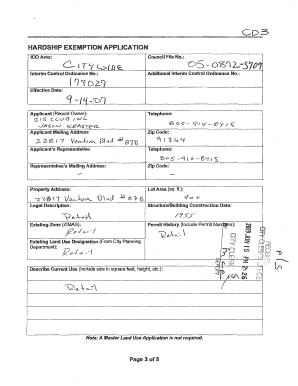 CD3
HARDSHIP EXEMPTION APPLICATION
ICO Area:
CITYWIDE
Council File No.:
05-0872-S909
Interim Control Ordinance No.:
179027
Additional Interim Control Ordinance No.:
Effective Date:
9-14-07
Applicant (Record Owner):
Telephone:
805-910-8415
Applicant Mailing Address
22817 Ventura Blvd #878
Zip Code:
91364
Applicant's Representative
Telephone:
805-910-8415
Representative's Mailing Address:
Zip Code:
Property Address:
22817 Ventura Blvd #878
Lot Area (sq. ft.):
900
Legal Description:
Retail
Structure/Building Construction Date:
1955
Existing Zone (ZIMAS):
Retail
Permit History (Include Permit Numbers):
Retail
Existing Land Use Designation (From City Planning Department):
Retail
CITY CLERK
2009 JUN 15 PM 2:26
CITY CLERK'S OFFICE
Describe Current Use (Include size in square feet, height, etc.):
Retail
Note: A Master Land Use Application is not required.
Page 3 of 5